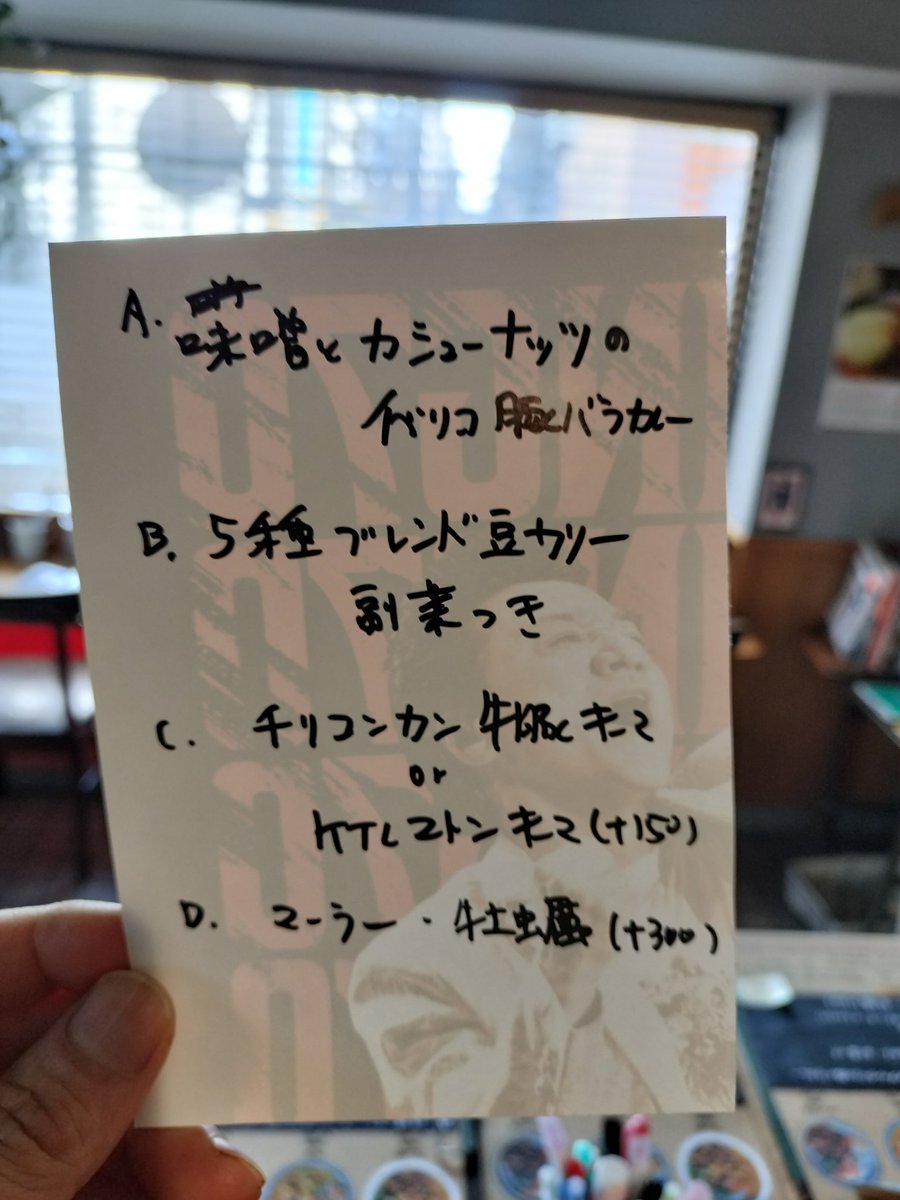 A. 味噌とカシューナッツの
イベリコ豚バラカレー
B. 5種ブレンド豆カリー
副菜つき
C. チリコンカン 牛豚キーマ
or
マトンキーマ(+150)
D. マーラー・牡蠣 (+300)